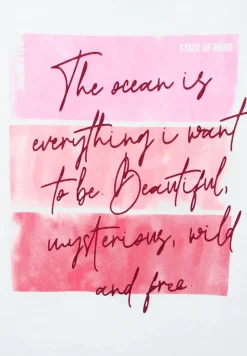 STATE OF MIND
The ocean is
everything i want
to be. Beautiful,
mysterious, wild
and free.